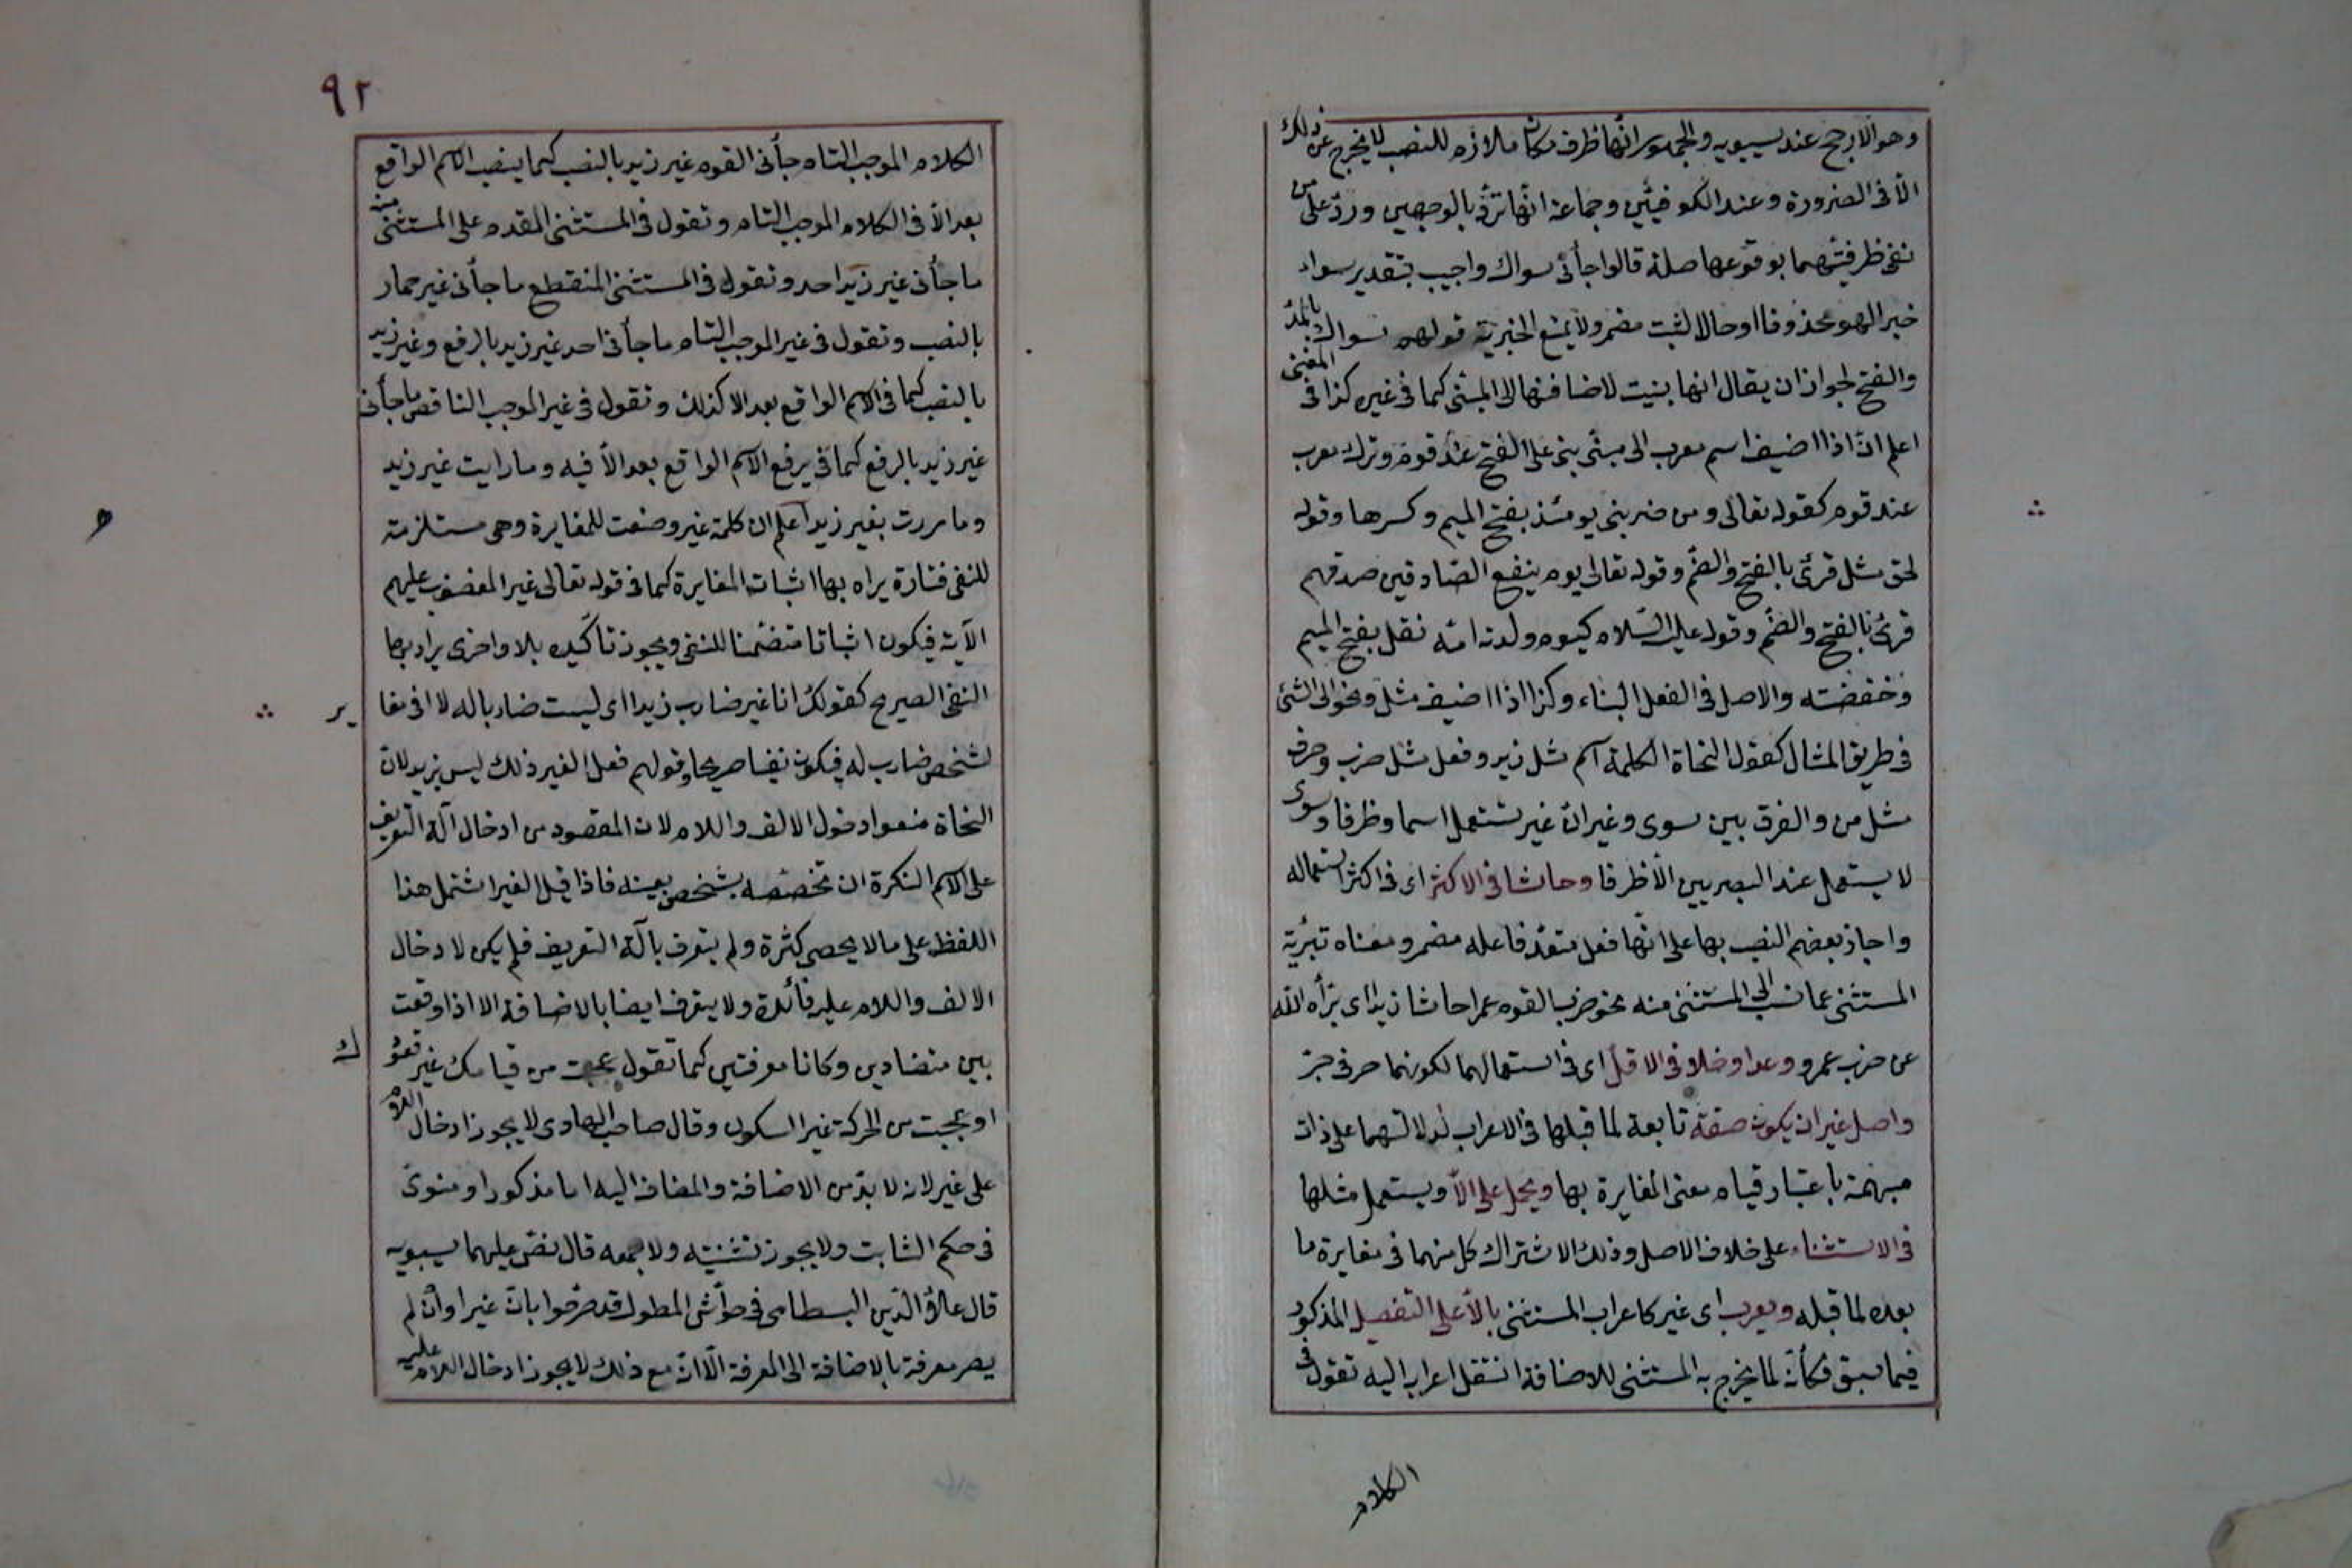 وهو الارجح عند سيبويه والجمهور انّها ظرف مكان ملازم للنصب لا يخرج عن ذلك
الّا فى الضرورة وعند الكوفيّين وجماعة انّها ترد بالوجهين وردّ على من
نفى ظرفيّتهما بوقوعها صلة قالوا جأنى سواك واجيب بتقدير سواد
خبر الهو محذوفا او حالا لثبت مضمر ولا يمنع الخبرية قولهم سواك بالمدّ
والفتح لجواز ان يقال انها بنيت لاضافتها الى المبنى كما فى غيره كذا فى المغنى
اعلم انّ اذا اضيف اسم معرب الى مبنّى بنى على الفتح عند قوم وترك معرب
عند قوم كقوله تعالى ومن خزى يومئذ بفتح الميم وكسرها وقوله
لحق مثل قرئ بالفتح والضّم وقوله تعالى يوم ينفع الصّادقين صدقهم
قرئ بالفتح والضّم وقوله عليه السّلام كيوم ولدته امّه نقل بفتح الميم
وخفضته والاصل فى الفعل البناء وكذا اذا اضيف مثل ونحو الى الشئ
فى طريق المثال كقول النحاة الكلمة اسم مثل زيد وفعل مثل ضرب وحرف
مثل من والفرق بين سوى وغير انّ غير تستعمل اسما وظرفا وسوى
لا يستعمل عند البصريين الّا ظرفا وحاشا فى الاكثر اى فى اكثر استعماله
واجاز بعضهم النصب بها على انّها فعل متعدّ فاعله مضمر ومعناه تبرّية
المستثنى عما نسب الى المستثنى منه نحو ضرب القوم عمرا حاشا زيدا اى برّأه الله
عن ضرب عمرو وعدا وخلا فى الاقلّ اى فى استعمالهما لكونهما حرفى جرّ
واصل غير ان يكون صفة تابعة لما قبلها فى الاعراب لدلالتهما على ذات
مبهمة باعتبار قيام معنى المغايرة بها ويحمل على الّا ويستعمل مثلها
فى الاستثناء على خلاف الاصل وذلك الاشتراك كل منهما فى مغايرة ما
بعده لما قبله ويعرب اى غير كاعراب المستثنى بالّا على التفصيل المذكور
فيما سبق فكأنّه لما يخرج به المستثنى للاضافة انتقل اعرابه اليه تقول فى
الكلام
٩٢
الكلام الموجب التام جأنى القوم غير زيد بالنصب كما ينصب الاسم الواقع
بعد الّا فى الكلام الموجب التام وتقول فى المستثنى المقدم على المستثنى منه
ما جأنى غير زيد احد وتقول فى المستثنى المنقطع ما جأنى غير حمار
بالنصب وتقول فى غير الموجب التام ما جأنى احد غير زيد بالرفع وغير زيد
بالنصب كما فى الاسم الواقع بعد الّا كذلك وتقول فى غير الموجب الناقص ما جأنى
غير زيد بالرفع كما فى يرفع الاسم الواقع بعد الّا فيه وما رايت غير زيد
وما مررت بغير زيد اعلم ان كلمة غير وضعت للمغايرة وهى مستلزمة
للنفى فتارة يراد بها اثبات المغايرة كما فى قوله تعالى غير المغضوب عليهم
الآية فيكون اثباتا متضمّنا للنفى ويجوز تأكيده بلا واخرى يراد بها
النفى الصريح كقولك انا غير ضارب زيدا اى ليست ضاربا له لا انى مغا
ير
لشخص ضارب له فيكون نفيا صريحا وقولهم فعل الغير ذلك ليس بزيد لان
النحاة منعوا دخول الالف واللام لان المقصود من ادخال آلة التعريف
على الاسم النكرة ان تخصّصه بشخص بعينه فاذا قيل الغير اشتمل هذا
اللفظ على ما لا يحصى كثرة ولم يتعرف بآلة التعريف فلم يكن لا دخال
الالف واللام عليه فائدة ولا يتعرف ايضا بالاضافة الا اذا وقعت
بين متضادين وكانا معرفتين كما تقول عجبت من قيامك غير قعود
ك
او عجبت من الحركة غير السكون وقال صاحب الهادى لا يجوز ادخال اللام
على غير لانه لا بدّ من الاضافة والمضاف اليه اما مذكورا او منوىّ
فى حكم الثابت ولا يجوز تثنيته ولا جمعه قال نصّ عليهما سيبويه
قال علاؤ الدّين البسطامى فى حواشى المطول قد صرّحوا بانّ غيرا وان لم
يصر معرفة بالاضافة الى المعرفة الّا انّه مع ذلك لا يجوز ادخال اللام عليه